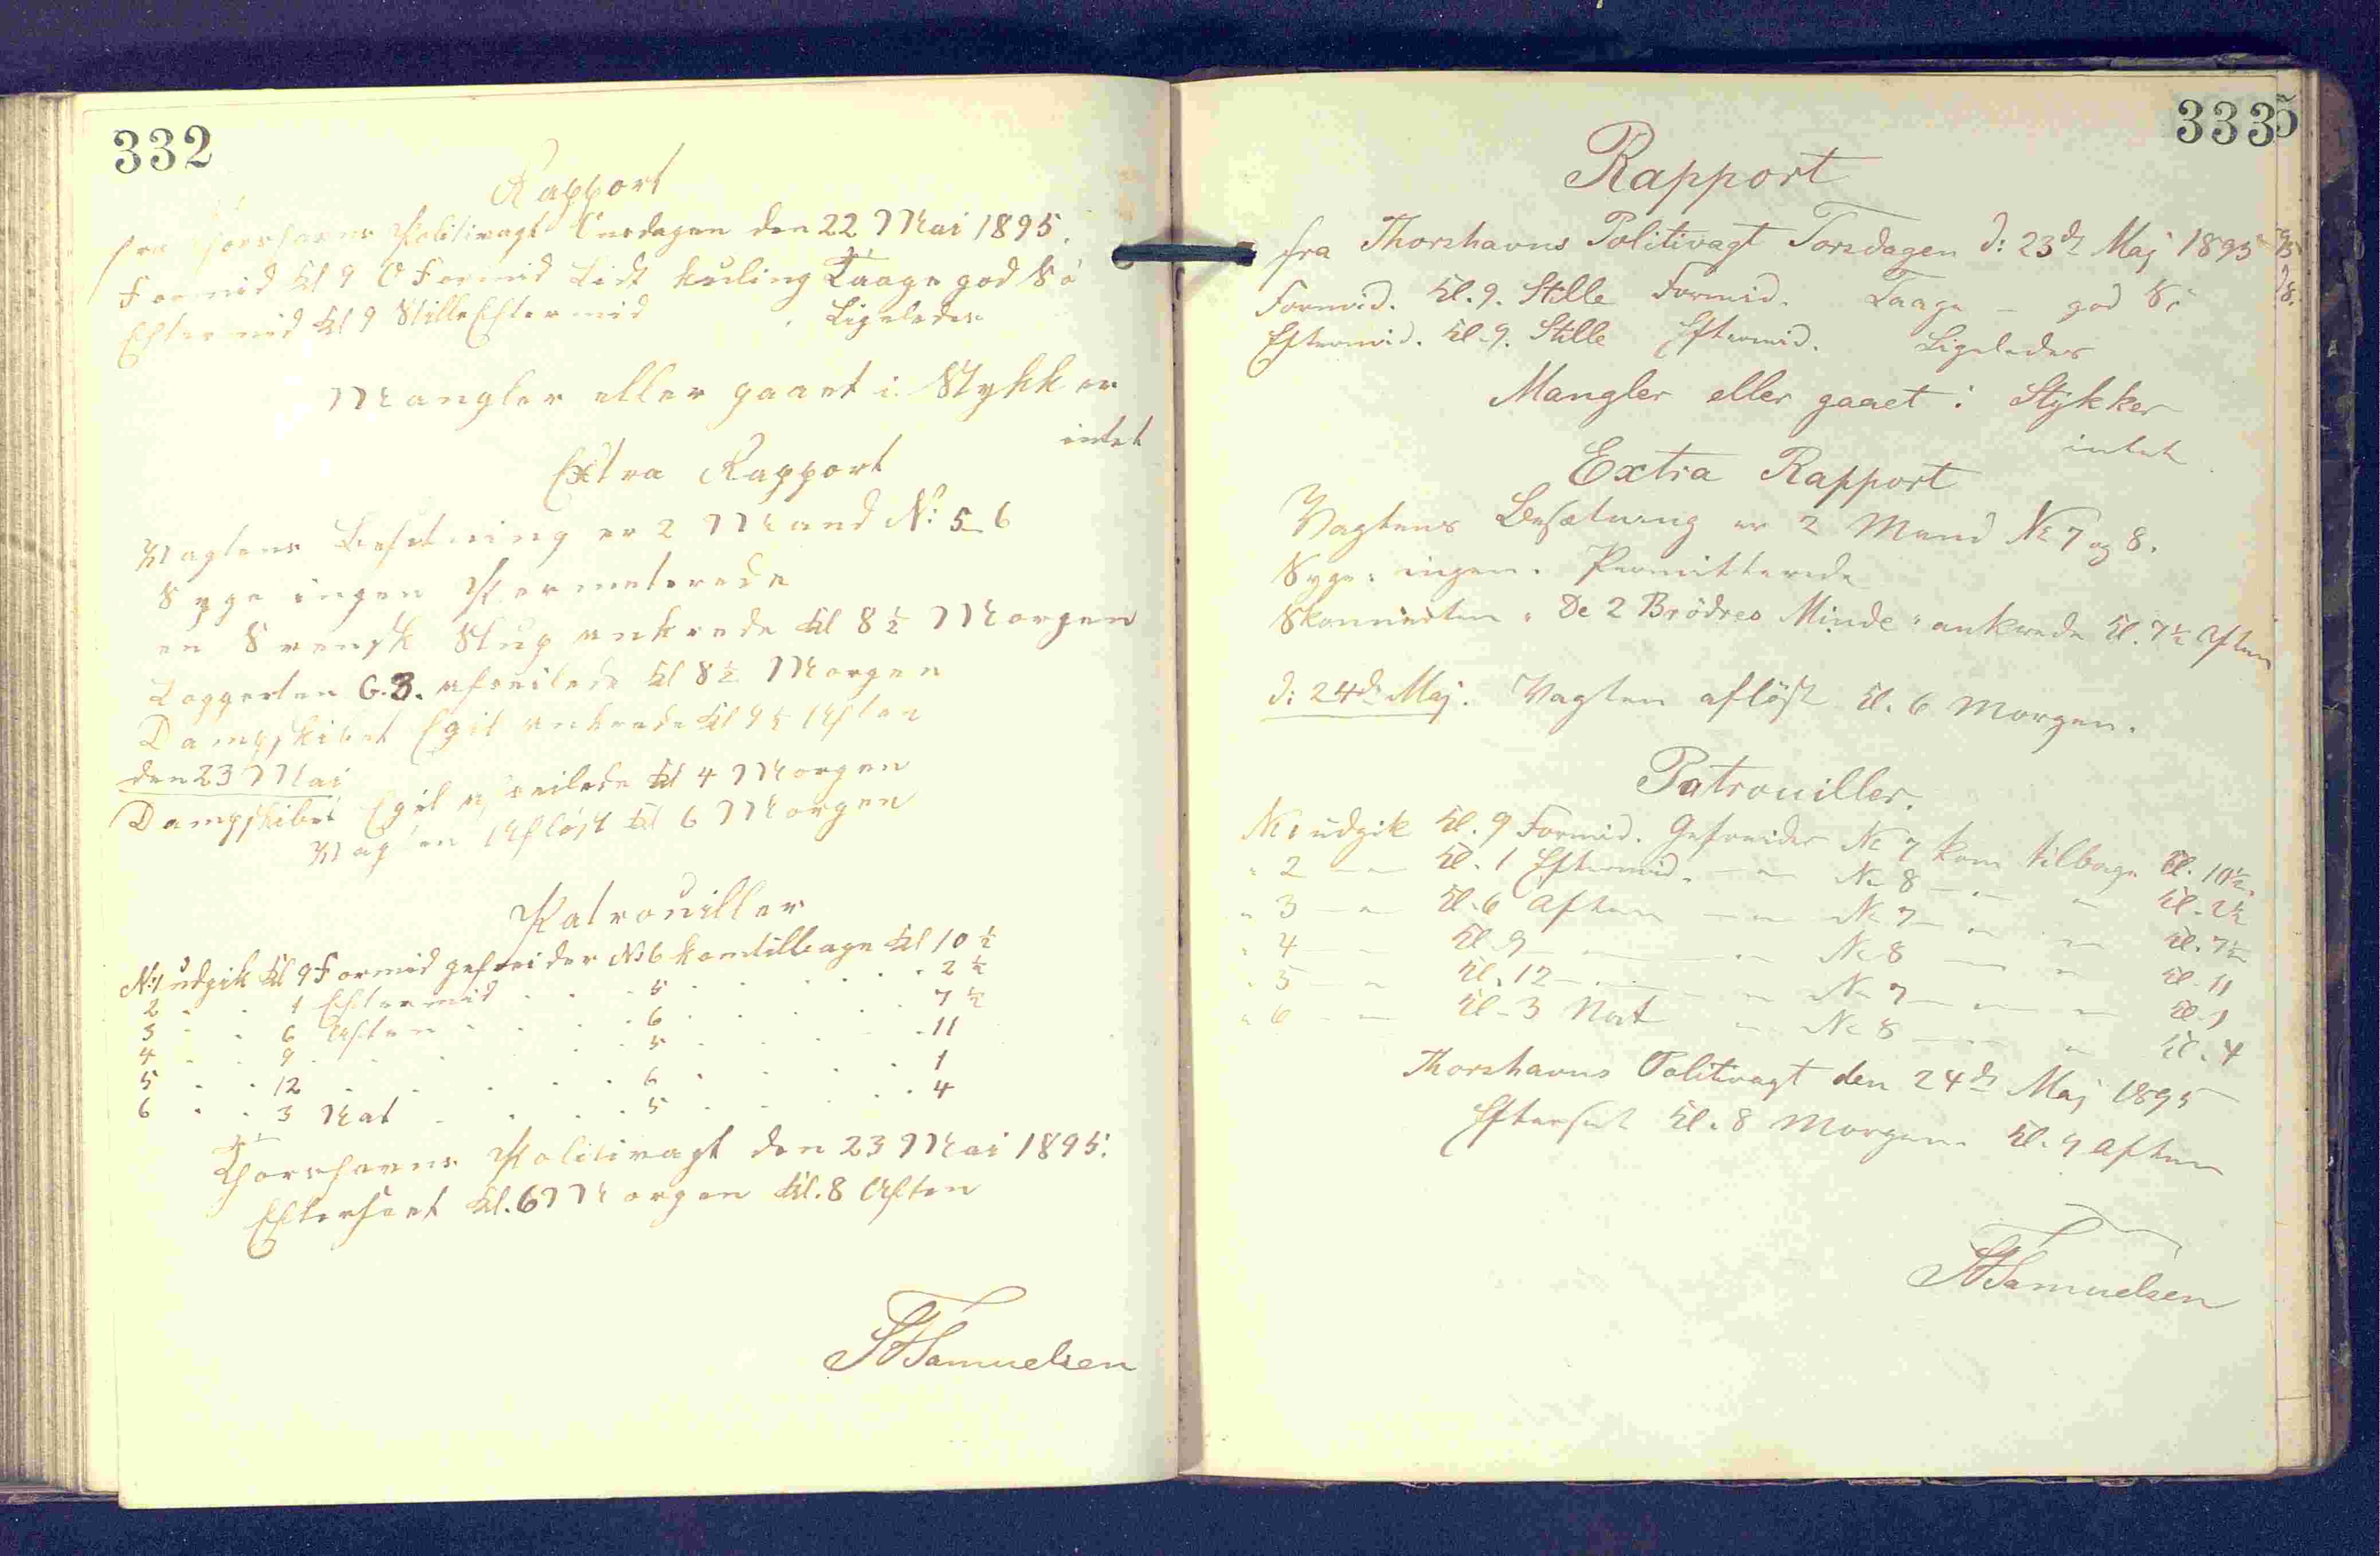 332
Rapport
fra Thorshavns Politivagt Onsdagen den 22 Mai 1895.
Formid Kl 9 O Formid Lidt kuling Taage god Sö
Eftermid Kl 9 Stille Eftermid Ligeledes
Mangler eller gaaet i Stykker
intet
Extra Rapport
Vagtens Besetning er 2 Mand No: 5_6
Syge ingen Permeterede
en Svensk Slup ankrede Kl 8½ Morgen
Loggerten G.3. afseilede Kl 8½ Morgen
Dampskibet Egil ankrede Kl 9½ Aften
den 23 Mai
Dampskibet Egil afseilede Kl 4 Morgen
Vagten Aflöst Kl 6 Morgen
Patrouiller
No: 1 udgik Kl 9 Formid gefreider No 6 kom tilbage Kl 10½
2 . . 1 Eftermid . . . 5 . . . . . 2½
3 . . 6 Aften . . . 6 . . . . . 7½
4 . . 9 . . . . . 5 . . . . . 11
5 . . 12 . . . . . 6 . . . . . 1
6 . . 3 Nat . . . . 5 . . . . . 4
Thorshavns Politivagt den 23 Mai 1895.
Efterseet Kl. 6 Morgen Kl. 8 Aften
Samuelsen
333
Rapport
fra Thorshavns Politivagt Torsdagen d: 23de Maj 1895
Formid. Kl. 9. Stille Formid. Taage – god Sö
Eftermid. Kl. 9. Stille Eftermid. Ligeledes
Mangler eller gaaet i Stykker
intet
Extra Rapport
Vagtens Besætning er 2 Mand No 7 og 8.
Syge: ingen. Permitterede
Skonnerten "De 2 Brödres Minde" ankrede Kl. 7½ Aften
d: 24de Maj. Vagten aflöst Kl. 6 Morgen.
Patrouiller.
No 1 udgik Kl. 9 Formid. Gefreider No 7 kom tilbage Kl. 10½.
" 2 — Kl. 1 Eftermid. — No 8 — " — Kl. 2½
" 3 — Kl. 6 Aften — No 7 — " — Kl. 7½
" 4 — Kl. 9 — — No 8 — " Kl. 11
" 5 — Kl. 12 — — No 7 — — Kl. 1
" 6 — Kl. 3 Nat — No 8 — " Kl. 4
Thorshavns Politivagt den 24de Maj 1895
Efterset Kl. 8 Morgen Kl. 9 Aften
Samuelsen